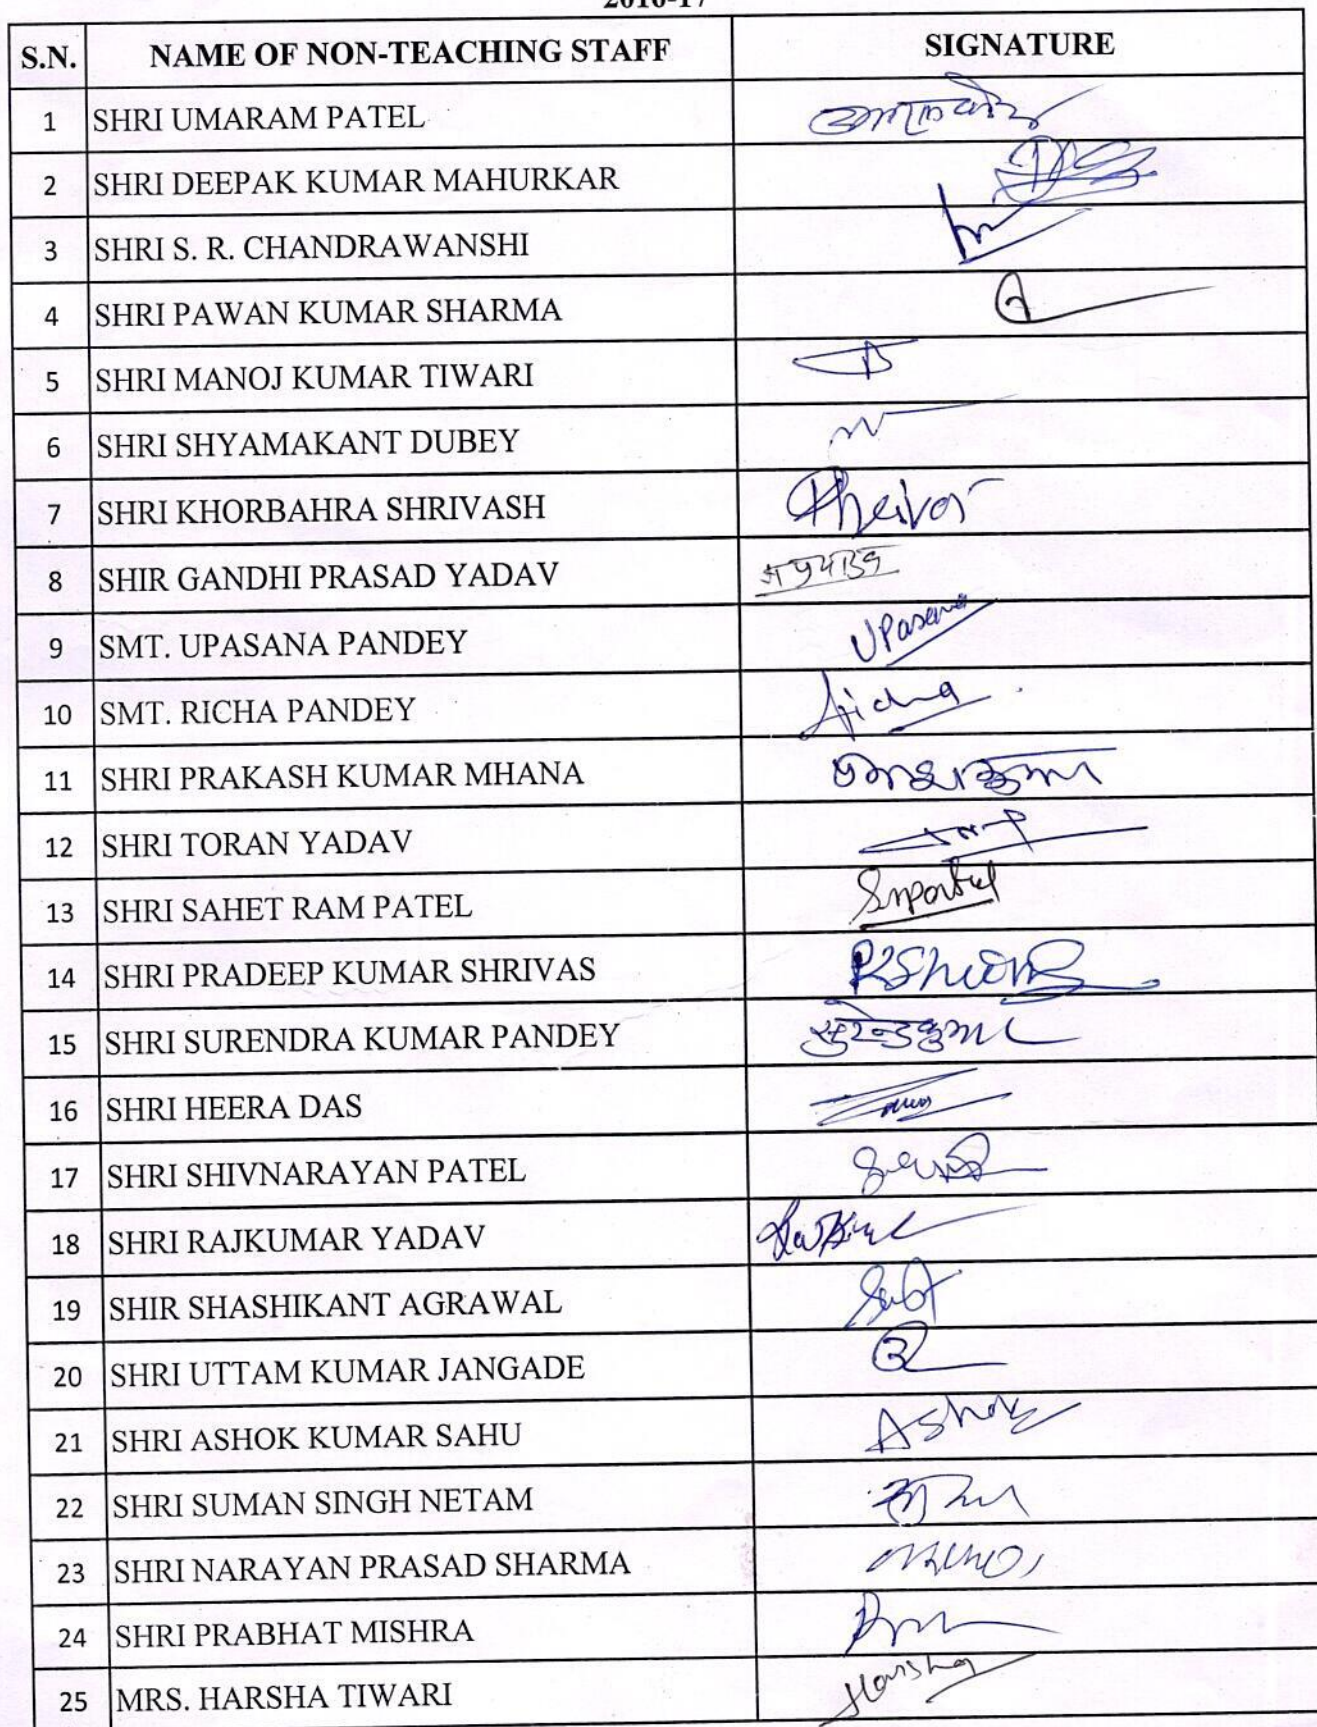 2016-17
S.N. NAME OF NON-TEACHING STAFF SIGNATURE
1 SHRI UMARAM PATEL
2 SHRI DEEPAK KUMAR MAHURKAR
3 SHRI S. R. CHANDRAWANSHI
4 SHRI PAWAN KUMAR SHARMA
5 SHRI MANOJ KUMAR TIWARI
6 SHRI SHYAMAKANT DUBEY
7 SHRI KHORBAHRA SHRIVASH
8 SHIR GANDHI PRASAD YADAV
9 SMT. UPASANA PANDEY Upasana
10 SMT. RICHA PANDEY Richa
11 SHRI PRAKASH KUMAR MHANA
12 SHRI TORAN YADAV
13 SHRI SAHET RAM PATEL Srpatel
14 SHRI PRADEEP KUMAR SHRIVAS
15 SHRI SURENDRA KUMAR PANDEY सुरेन्द्र कुमार
16 SHRI HEERA DAS
17 SHRI SHIVNARAYAN PATEL
18 SHRI RAJKUMAR YADAV
19 SHIR SHASHIKANT AGRAWAL
20 SHRI UTTAM KUMAR JANGADE
21 SHRI ASHOK KUMAR SAHU Ashok
22 SHRI SUMAN SINGH NETAM
23 SHRI NARAYAN PRASAD SHARMA
24 SHRI PRABHAT MISHRA
25 MRS. HARSHA TIWARI Harsha